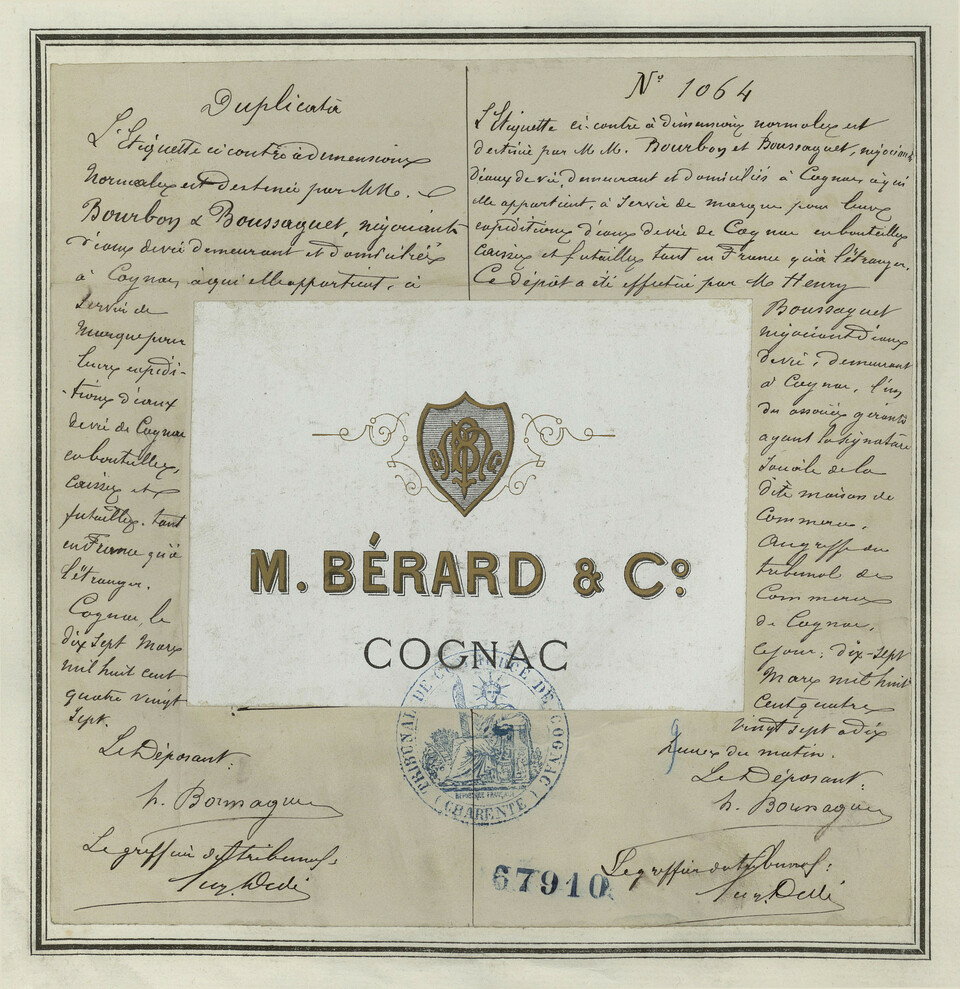 Duplicata
L'Etiquette ci contre à demensions
Normales est destinée par MM.
Bourbon & Boussaguet, négociants
d'eaux de vie demeurant et domiciliés
à Cognac, à qui elle appartient, à
Servir de
Marque pour
leurs expédi-
-tions d'eaux
de vie de Cognac
en bouteilles,
caisses et
futailles. tant
en France qu'à
l'étranger.
Cognac, le
dix Sept Mars
mil huit cent
quatre vingt
Sept.
Le Déposant:
h. Boussaguet
Le greffier du tribunal:
N° 1064
L'Etiquette ci-contre à dimensions normales est
destinée par M M. Bourbon et Boussaguet, négociants
d'eaux de vie, demeurant et domiciliés à Cognac, à qui
elle appartient, à Servir de marque pour leurs
expéditions d'eaux de vie de Cognac en bouteilles
caisses et futailles tant en France qu'à l'étranger.
Ce dépôt a été effectué par M Henry
Boussaguet
négociant d'eaux
de vie, demeurant
à Cognac, l'un
des associés gérants
ayant la signature
Sociale de la
dite maison de
Commerce.
Au greffe du
tribunal de
Commerce
de Cognac,
ce jour: dix-sept
Mars mil huit
Cent quatre
vingt sept à dix
heures du matin.
Le Déposant:
h. Boussaguet
Le greffier du tribunal:
M. BÉRARD & Cº
COGNAC
TRIBUNAL DE COMMERCE DE COGNAC
REPUBLIQUE FRANÇAISE
(CHARENTE)
67910